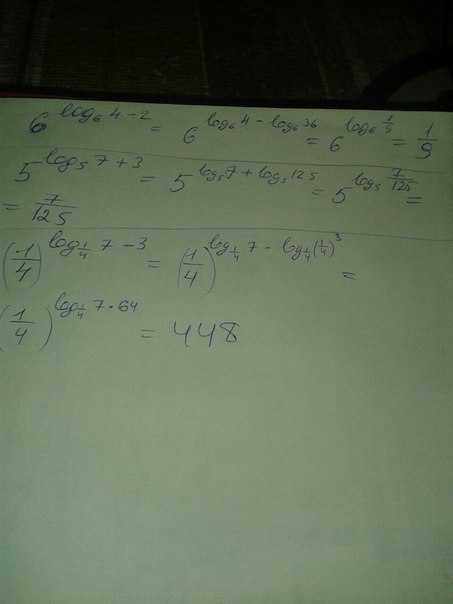 6^{log_6 4 - 2} = 6^{log_6 4 - log_6 36} = 6^{log_6 \frac{1}{9}} = \frac{1}{9}
5^{log_5 7 + 3} = 5^{log_5 7 + log_5 125} = 5^{log_5 \frac{7}{125}} =
= \frac{7}{125}
(\frac{1}{4})^{log_{\frac{1}{4}} 7 - 3} = (\frac{1}{4})^{log_{\frac{1}{4}} 7 - log_{\frac{1}{4}} (\frac{1}{4})^3} =
(\frac{1}{4})^{log_{\frac{1}{4}} 7 \cdot 64} = 448